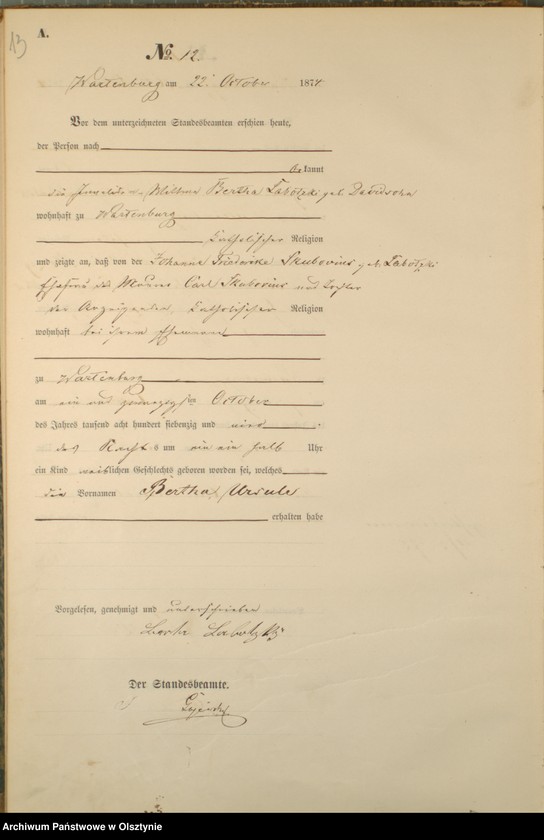 13
A.
No. 12.
Wartenburg am 22. October 1874
Vor dem unterzeichneten Standesbeamten erschien heute,
der Person nach
bekannt
die Wittwe Bertha Labotzki geb. Davidsohn
wohnhaft zu Wartenburg
katholischer Religion
und zeigte an, daß von der Johanna Friederike Skubovius geb. Labotzki
Ehefrau des Carl Skubovius und Tochter
der Anzeigenden, katholischer Religion
wohnhaft bei ihrem Ehemann
zu Wartenburg
am ein und zwanzigsten October
des Jahres tausend acht hundert siebenzig und vier
des Nachts um ein ein halb Uhr
ein Kind weiblichen Geschlechts geboren worden sei, welches
die Vornamen Bertha, Ursula
erhalten habe
Vorgelesen, genehmigt und unterschrieben
Labotzki
Der Standesbeamte.
Archiwum Państwowe w Olsztynie